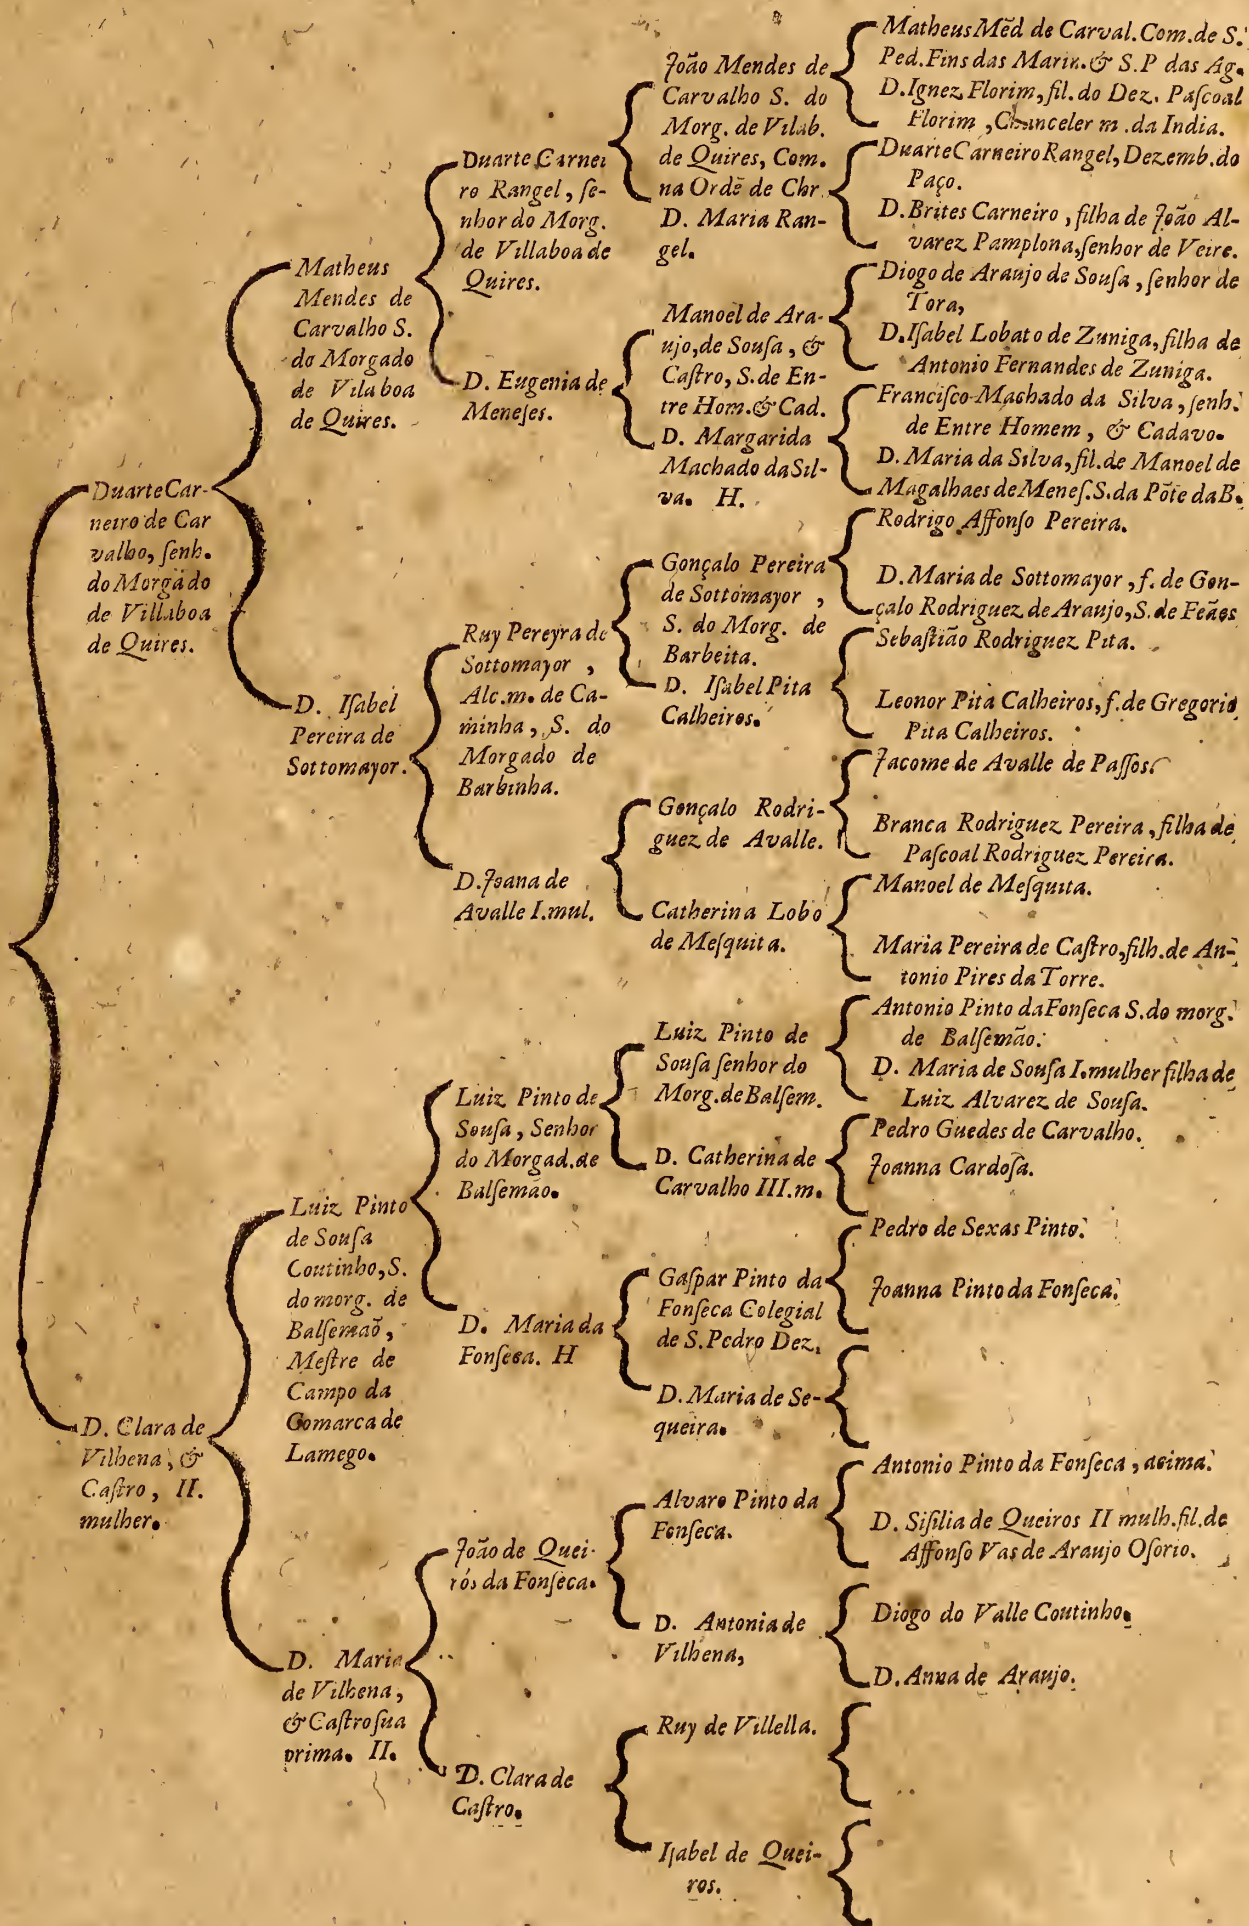 Duarte Car-
neiro de Car
valho, ſenh.
do Morgado
de Villaboa
de Quires.
D. Clara de
Vilhena, &
Caſtro, II.
mulher.
Matheus
Mendes de
Carvalho S.
do Morgado
de Vilaboa
de Quires.
D. Iſabel
Pereira de
Sottomayor.
Luiz Pinto
de Souſa
Coutinho, S.
do morg. de
Balſemaõ,
Meſtre de
Campo da
Comarca de
Lamego.
D. Maria
de Vilhena,
& Caſtro ſua
prima. II.
Duarte Carnei
ro Rangel, ſe-
nhor do Morg.
de Villaboa de
Quires.
D. Eugenia de
Meneſes.
Ruy Pereyra de
Sottomayor,
Alc. m. de Ca-
minha, S. do
Morgado de
Barbinha.
D. Joana de
Avalle I. mul.
Luiz Pinto de
Souſa, Senhor
do Morgad. de
Balſemão.
D. Maria da
Fonſeca. H
João de Quei-
rós da Fonſeca.
D. Clara de
Caſtro.
João Mendes de
Carvalho S. do
Morg. de Vilab.
de Quires, Com.
na Ordẽ de Chr.
D. Maria Ran-
gel.
Manoel de Ara-
ujo, de Souſa, &
Caſtro, S. de En-
tre Hom. & Cad.
D. Margarida
Machado da Sil-
va. H.
Gonçalo Pereira
de Sottomayor,
S. do Morg. de
Barbeita.
D. Iſabel Pita
Calheiros.
Gonçalo Rodri-
guez de Avalle.
Catherina Lobo
de Meſquita.
Luiz Pinto de
Souſa ſenhor do
Morg. de Balſem.
D. Catherina de
Carvalho III. m.
Gaſpar Pinto da
Fonſeca Colegial
de S. Pedro Dez.
D. Maria de Se-
queira.
Alvaro Pinto da
Fonſeca.
D. Antonia de
Vilhena,
Ruy de Villella.
Iſabel de Quei-
ros.
Matheus Mẽd de Carval. Com. de S.
Ped. Fins das Marin. & S. P das Ag.
D. Ignez Florim, fil. do Dez. Paſcoal
Florim, Chanceler m. da India.
Duarte Carneiro Rangel, Dezemb. do
Paço.
D. Brites Carneiro, filha de João Al-
varez Pamplona, ſenhor de Veire.
Diogo de Araujo de Souſa, ſenhor de
Tora,
D. Iſabel Lobato de Zuniga, filha de
Antonio Fernandes de Zuniga.
Franciſco Machado da Silva, ſenh.
de Entre Homem, & Cadavo.
D. Maria da Silva, fil. de Manoel de
Magalhaes de Meneſ. S. da Põte da B.
Rodrigo Affonſo Pereira.
D. Maria de Sottomayor, f. de Gon-
çalo Rodriguez de Araujo, S. de Feães
Sebaſtião Rodriguez Pita.
Leonor Pita Calheiros, f. de Gregorio
Pita Calheiros.
Jacome de Avalle de Paſſos.
Branca Rodriguez Pereira, filha de
Paſcoal Rodriguez Pereira.
Manoel de Meſquita.
Maria Pereira de Caſtro, filh. de An-
tonio Pires da Torre.
Antonio Pinto da Fonſeca S. do morg.
de Balſemão.
D. Maria de Souſa I. mulher filha de
Luiz Alvarez de Souſa.
Pedro Guedes de Carvalho.
Joanna Cardoſa.
Pedro de Sexas Pinto.
Joanna Pinto da Fonſeca.
Antonio Pinto da Fonſeca, acima.
D. Siſilia de Queiros II mulh. fil. de
Affonſo Vas de Araujo Oſorio.
Diogo do Valle Coutinho.
D. Anna de Araujo.